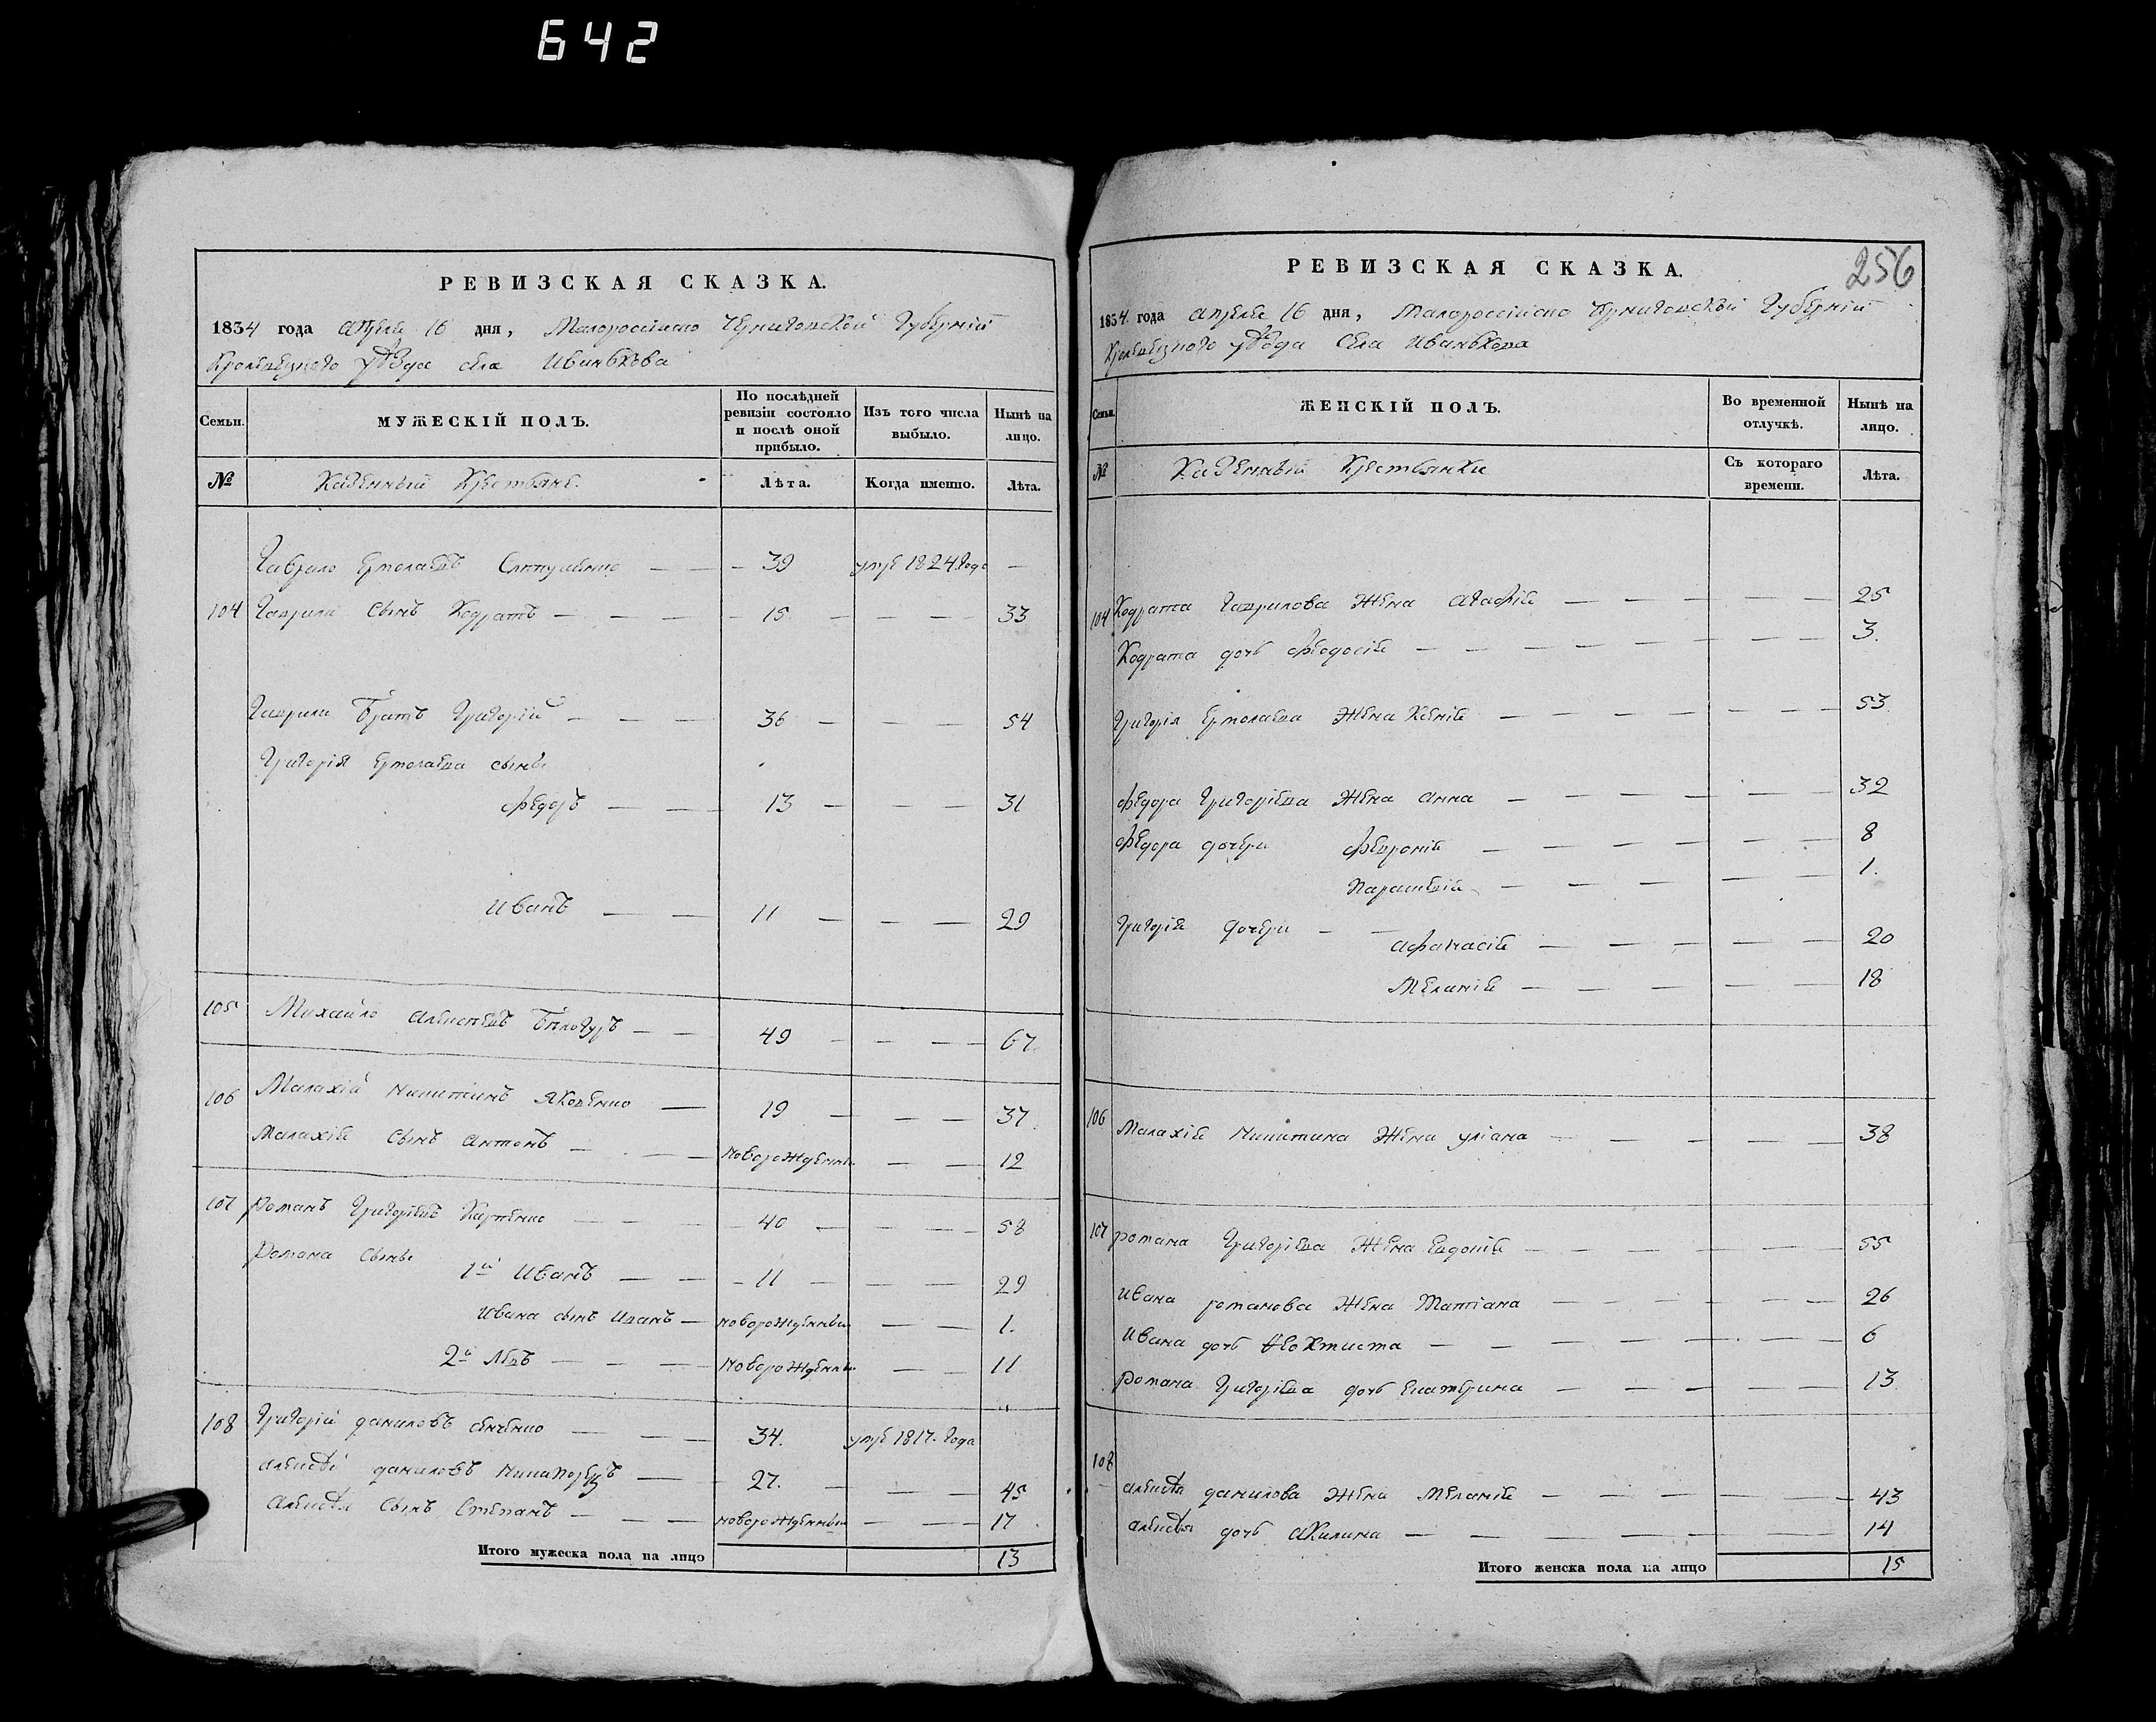 642
РЕВИЗСКАЯ СКАЗКА.
1834 года апреля 16 дня, Малороссійско Черниговской Губерніи
Кролевецкого уѣзда села Иванькова
Семьи.
МУЖЕСКІЙ ПОЛЪ.
По послѣдней ревизіи состояло и послѣ оной прибыло.
Изъ того числа выбыло.
Нынѣ на лицо.
№
Казенный Крестьяне.
Лѣта.
Когда именно.
Лѣта.
Гаврило Ермолаевъ 39 умре 1824 Года
104 Гаврила сынъ Кодратъ 15 33
Гаврила Братъ Григорій 36 54
Григорія Ермолаева сыны
Федоръ 13 31
Иванъ 11 29
105 Михайло Алексеевъ Белогуръ 49 67
106 Малахій Никитинъ Яковенко 19 37
Малахія сынъ Антонъ новорожденный 12
107 Романъ Григорьевъ Карпенко 40 58
Романа сыны
1й Иванъ 11 29
Ивана сынъ Иванъ новорожденный 1.
2й Левъ новорожденный 11
108 Григорій Даниловъ 34. умре 1817. Года
Алексѣй Даниловъ 27. 45
Алексѣя Сынъ Степанъ новорожденный 17
Итого мужеска пола на лицо 13
256
РЕВИЗСКАЯ СКАЗКА.
1834 года апреля 16 дня, Малороссійско Черниговской Губерніи
Кролевецкого уѣзда села Иванькова
Семьи.
ЖЕНСКІЙ ПОЛЪ.
Во временной отлучкѣ.
Нынѣ на лицо.
№
Казенный Крестьянки
Съ котораго времени.
Лѣта.
104 Кодрата Гаврилова жена Агафія 25
Кодрата дочь Феодосія 3.
Григорія Ермолаева жена Ксенія 53
Федора Григоріева жена Анна 32
Федора дочери Февронія 8
Парасковія 1.
Григорія дочери
Афанасія 20
Меланія 18
106 Малахія Никитина жена Уліана 38
107 Романа Григоріева жена Евдокія 55
Ивана Романова жена Татіана 26
Ивана дочь Феоктиста 6
Романа Григоріева дочь Екатерина 13
108
Алексѣя Данилова жена Меланія 43
Алексѣя дочь Акилина 14
Итого женска пола на лицо 15